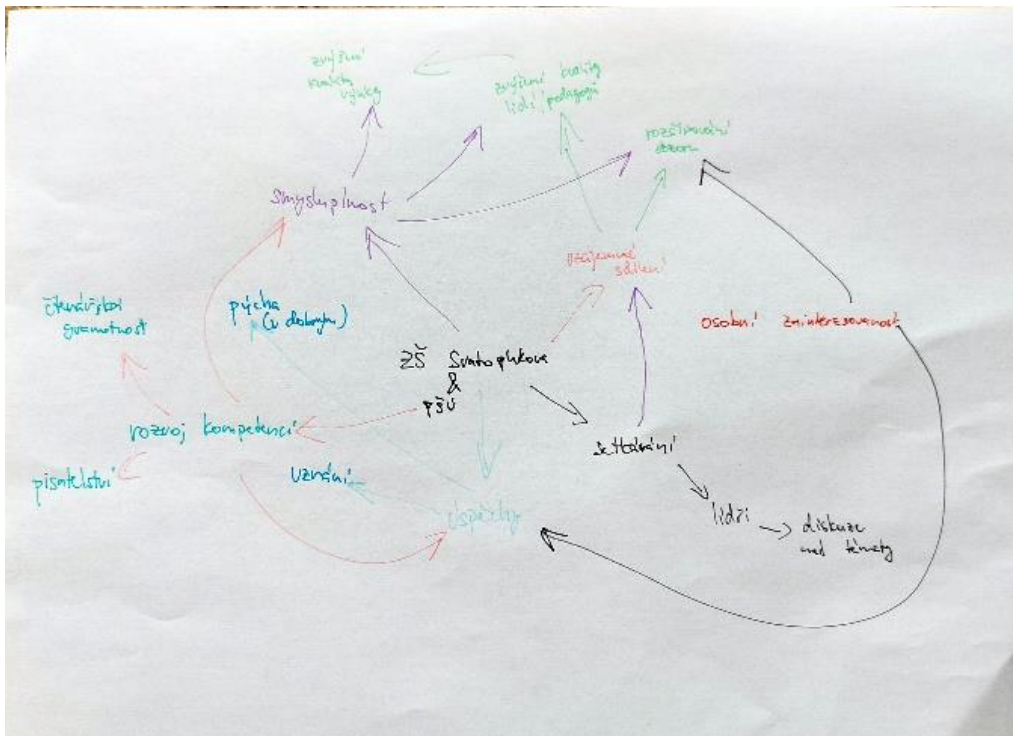 zvýšení
kvality
výuky
zvýšení kvality
lídrů, pedagogů
rozšiřování
obzorů
smysluplnost
vzájemné
sdílení
čtenářská
gramotnost
pýcha
(v dobrým)
osobní zainteresovanost
ZŠ Svatoplukova
&
PŠÚ
rozvoj kompetencí
setkávání
písatelství
uznání
úspěchy
lídři
diskuze
nad tématy